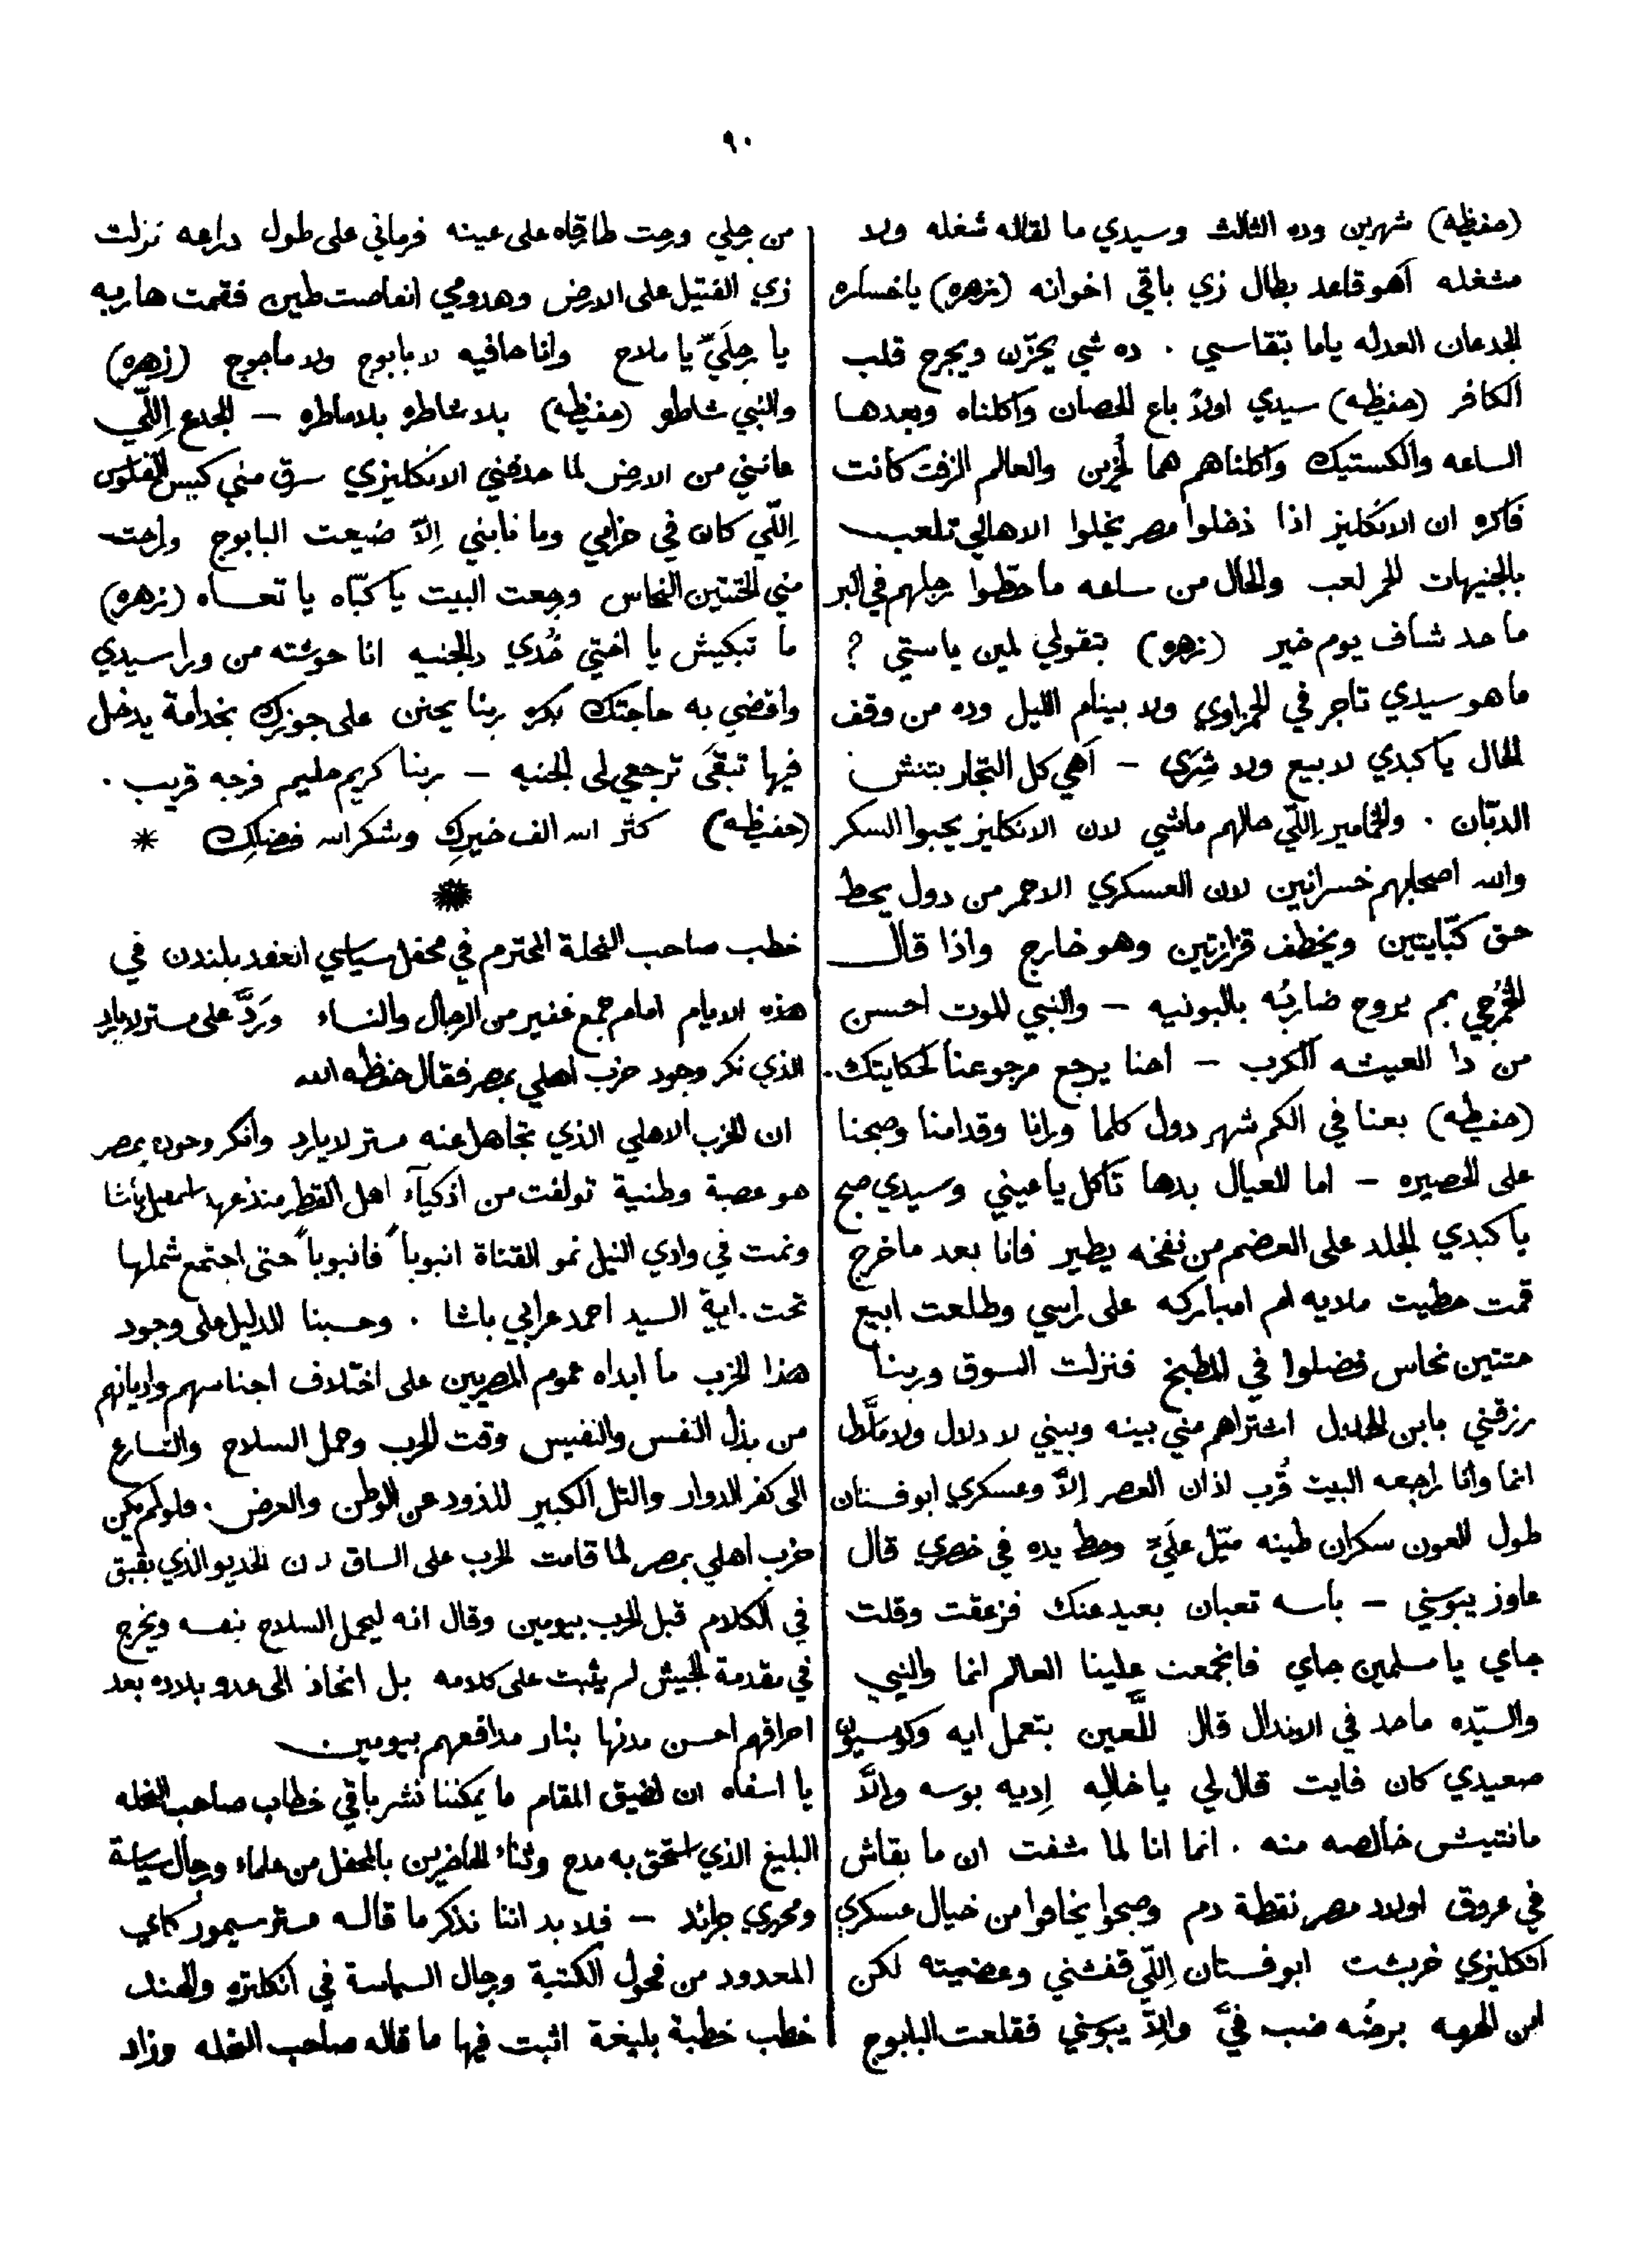 ٩٠
(حفيظه) شهرين وده الثالث وسيدي ما لقاله شغله ولا
مشغله آهو قاعد بطال زي باقي اخوانه (زهره) ياخساره
الجدعان العدله ياما بتقاسي . ده شي يحزّن ويجرح قلب
الكافر (حفيظه) سيدي اولاً باع الحصان واكلناه وبعدها
الساعه والكستيك واكلناهم هما لُخرين والعالم الزفت كانت
فاكره ان الانكليز اذا دخلوا مصر يخلوا الاهالي تلعب
بالجنيهات الحمر لعب والحال من ساعه ما حطّوا رجلهم في البر
ما حد شاف يوم خير (زهره) بتقولي لمين ياستي ?
ما هو سيدي تاجر في الحمزاوي ولا بينام الليل وده من وقف
الحال يا كبدي لا بيع ولا شِرَى – آهي كل التجار بتنش
الدبّان . والخمامير اللّي حالهم ماشي لان الانكليز يحبوا السكر
والله اصحابهم خسرانين لان العسكري الاحمر من دول يحط
حق كبّايتين ويخطف قزازتين وهو خارج واذا قال
الخُمرجي بم يروح ضاربُه بالبونيه – والنبي الموت احسن
من دا العيشه الكرب – احنا يرجع مرجوعنا لحكايتك.
(حفيظه) بعنا في الكم شهر دول كلما ورانا وقدامنا وصبحنا
على الحصيره – اما العيال بدها تاكل يا عيني وسيدي صبح
يا كبدي الجلد على العضم من نفخه يطير فانا بعد ما خرج
قمت حطيت ملاية ام امباركه على راسي وطلعت ابيع
حتتين نحاس فضلوا في المطبخ فنزلت السوق وربنا
رزقني بابن الحلال اشتراهم مني بينه وبيني لا دلال ولا
انما وانا راجعه البيت قُرب اذان العصر إلاّ وعسكري ابو فستان
طول العون سكران طينه متيّل عليّ وحط يده في خصري قال
عاوز يبوسني – باسه تعبان بعيد عنك فزعقت وقلت
جاي يا مسلمين جاي فانجمعت علينا العالم انما والنبي
والسيّده ماحد في الاندال قال للّعين بتعمل ايه
صعيدي كان فايت قال لي يا خاله إديه بوسه والاّ
مانتيش خالصه منه . انما انا لما شفت ان ما بقاش
في عروق اولاد مصر نقطة دم وصبحوا يخافوا من خيال عسكري
انكليزي خربشت ابو فستان اللّي قفشني وعضيته لكن
ابن برضُه ضب فيّ والاّ يبوسني فقلعت البابوج
من رجلي ورحت طارقاه على عينه فرماني على طول دراعه نزلت
زي القتيل على الارض وهدومي انغاصت طين فقمت هاربه
يا رجلَيّ يا ملاح وانا حافيه لا بابوج ولا ماجوج (زهره)
والنبي شاطره (حفيظه) بلا شاطره بلا ماطره – الجدع اللّي
عانّي من الارض لما حدفني الانكليزي سرق مني كيس الفلوس
اللّي كان في حزامي وما نابني الاّ ضيعت البابوج وراحت
مني الحتتين النحاس ورجعت البيت يا كبّاه يا تعساه (زهره)
ما تبكيش يا اختي خُدي دالجنيه انا حوشته من ورا سيدي
واقضي به حاجتك بكره ربنا يحنن على جوزك بخدامة يدخل
فيها تبقَى ترجعي لي الجنيه – ربنا كريم حليم فرجه قريب .
(حفيظه) كثر الله الف خيركِ وشكر الله فضلكِ *
*
خطب صاحب النحلة المحترم في محفل سياسي انعقد بلندن في
هذه الايام امام جمع غفير من الرجال والنساء ورَدَّ على مستر لايارد
الذي نكر وجود حزب اهلي بمصر فقال حفظه الله
ان الحزب الاهلي الذي تجاهل عنه مستر لايارد وانكر وجوده بمصر
هو عصبة وطنية تولفت من اذكيآء اهل القطر منذ عهد اسمعيل باشا
ونمت في وادي النيل نمو القناة انبوباً فانبوباً حتى اجتمع شملها
تحت راية السيد احمد عرابي باشا . وحسبنا الدليل على وجود
هذا الحزب ما ابداه عموم المصريين على اختلاف اجناسهم واديانهم
من بذل النفس والنفيس وقت الحرب وحمل السلاح والتسارع
الى كفر الدوار والتل الكبير للذود عن الوطن والعرض . فلو لم يكن
حزب اهلي بمصر لما قامت الحرب على الساق لان الخديو الذي بقبق
في الكلام قبل الحرب بيومين وقال انه ليحمل السلاح بنفسه ويخرج
في مقدمة الجيش لم يثبت على كلامه بل انحاز الى عدو بلاده بعد
احراقهم احسن مدنها بنار مدافعهم بيومين
يا اسفاه ان لضيق المقام ما يمكننا نشر باقي خطاب صاحب النحله
البليغ الذي استحق به مدح وثناء الحاضرين بالمحفل من علماء ورجال سياسة
ومحرري جرائد – فلا بد اننا نذكر ما قاله مستر سيمور كاي
المعدود من فحول الكتبة ورجال السياسة في انكلتره والهند
خطب خطبة بليغة اثبت فيها ما قاله صاحب النحله وزاد